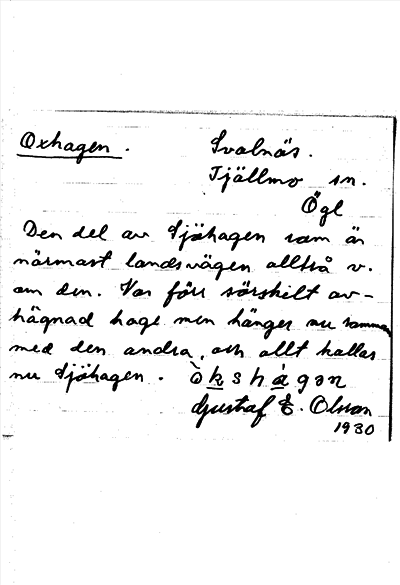 Oxhagen. Svalnäs.
Tjällmo sn.
Ögl
Den del av Sjöhagen som är
närmast landsvägen alltså v.
om den. Var förr särskilt av-
hägnad hage men hänger nu samman
med den andra, och allt kallas
nu Sjöhagen. ò̀kshágən
Gustaf E. Olsson
1930